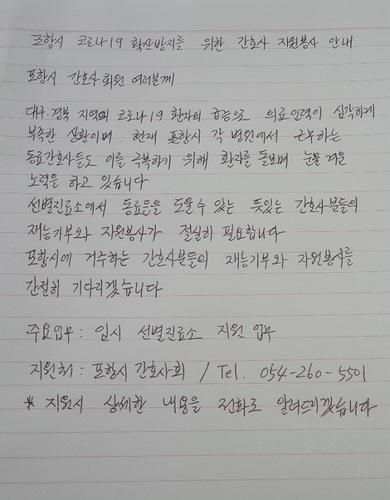 포항시 코로나19 확산방지를 위한 간호사 자원봉사 안내
포항시 간호사회원 여러분께
대구.경북 지역의 코로나19 환자의 급증으로 의료인력이 심각하게
부족한 실황이며 현재 포항시 각 병원에서 근무하는
동료간호사들도 이를 극복하기 위해 환자를 돌보며 눈물겨운
노력을 하고 있습니다
선별진료소에서 동료들을 도울수 있는 뜻있는 간호사분들의
재능기부와 자원봉사가 절실히 필요합니다
포항시에 거주하는 간호사분들의 재능기부와 자원봉사를
간절히 기다리겠습니다
주요업무 : 임시 선별진료소 지원 업무
지원처 : 포항시 간호사회 / Tel. 054-260-5501
* 지원시 상세한 내용을 전화로 알려드리겠습니다